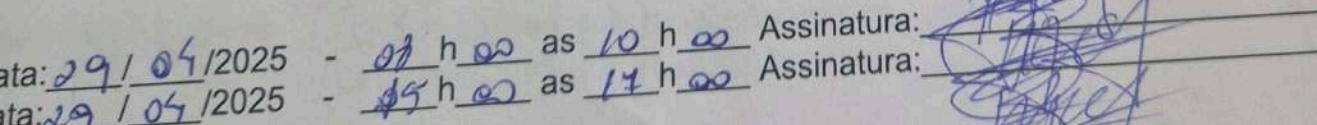 ata: 29 / 04 /2025 - h 00 as 10 h 00 Assinatura:
ata: 29 / 04 /2025 - 15 h 00 as 17 h 00 Assinatura: